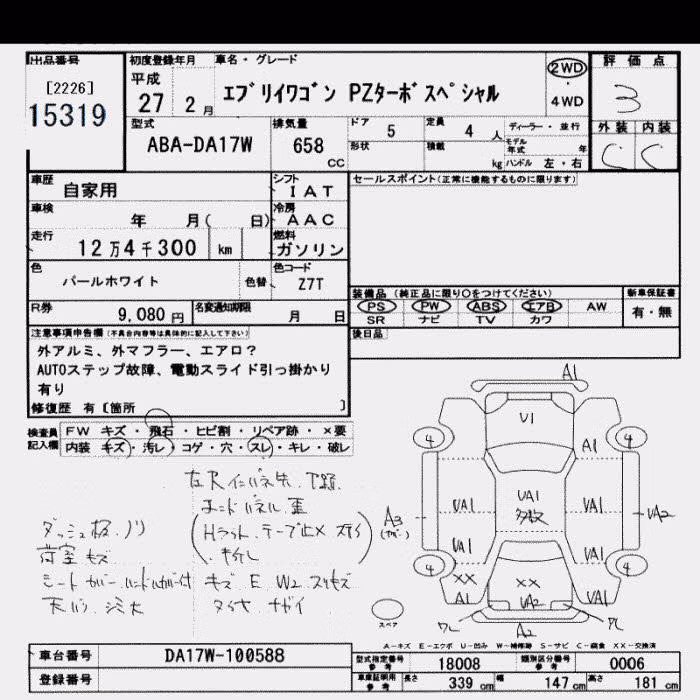 出品番号 初度登録年月 車名・グレード 評価点
[2226] 平成 エブリイワゴン PZターボスペシャル 2WD 3
15319 27 2月 4WD
型式 排気量 ドア 5 定員 4人 ディーラー・並行 外装 内装
ABA-DA17W 658 CC 形状 積載 kg モデル年式 年 ハンドル 左・右 C C
車歴 自家用 シフト IAT セールスポイント(正常に機能するものに限ります)
車検 年 月( 日) 冷房 AAC
走行 12万4千300 km 燃料 ガソリン
色 パールホワイト 色替 色コード Z7T
装備品 (純正品に限り○をつけてください) 新車保証書
R券 9,080円 名変通知期限 月 日 PS PW ABS エアB AW 有・無
SR ナビ TV カワ
注意事項申告欄(不具合内容等は具体的に記入して下さい) 後日品
外アルミ、外マフラー、エアロ?
AUTOステップ故障、電動スライド引っ掛かり
有り
修復歴 有〔箇所 〕
検査員記入欄 FW キズ・飛石・ヒビ割・リペア跡・×要
内装 キズ・汚レ・コゲ・穴・スレ・キレ・破レ
A1
U1
4 4
A1
UA1 UA1 UA1 UA2
多数
A3
UA1 UA1
4 4
XX XX
A1 UA2 UA1
A2
エンドパネル 歪
ダッシュ板 ノリ
荷室 キズ
キズ E W2
スペア
A-キズ E-エクボ U-凹み W-補修跡 S-サビ C-腐食 XX-交換済
車台番号 DA17W-100588 型式指定番号 参考 18008 類別区分番号 参考 0006
登録番号 車庫証明用 参考 長さ 339 cm 幅 147 cm 高さ 181 cm